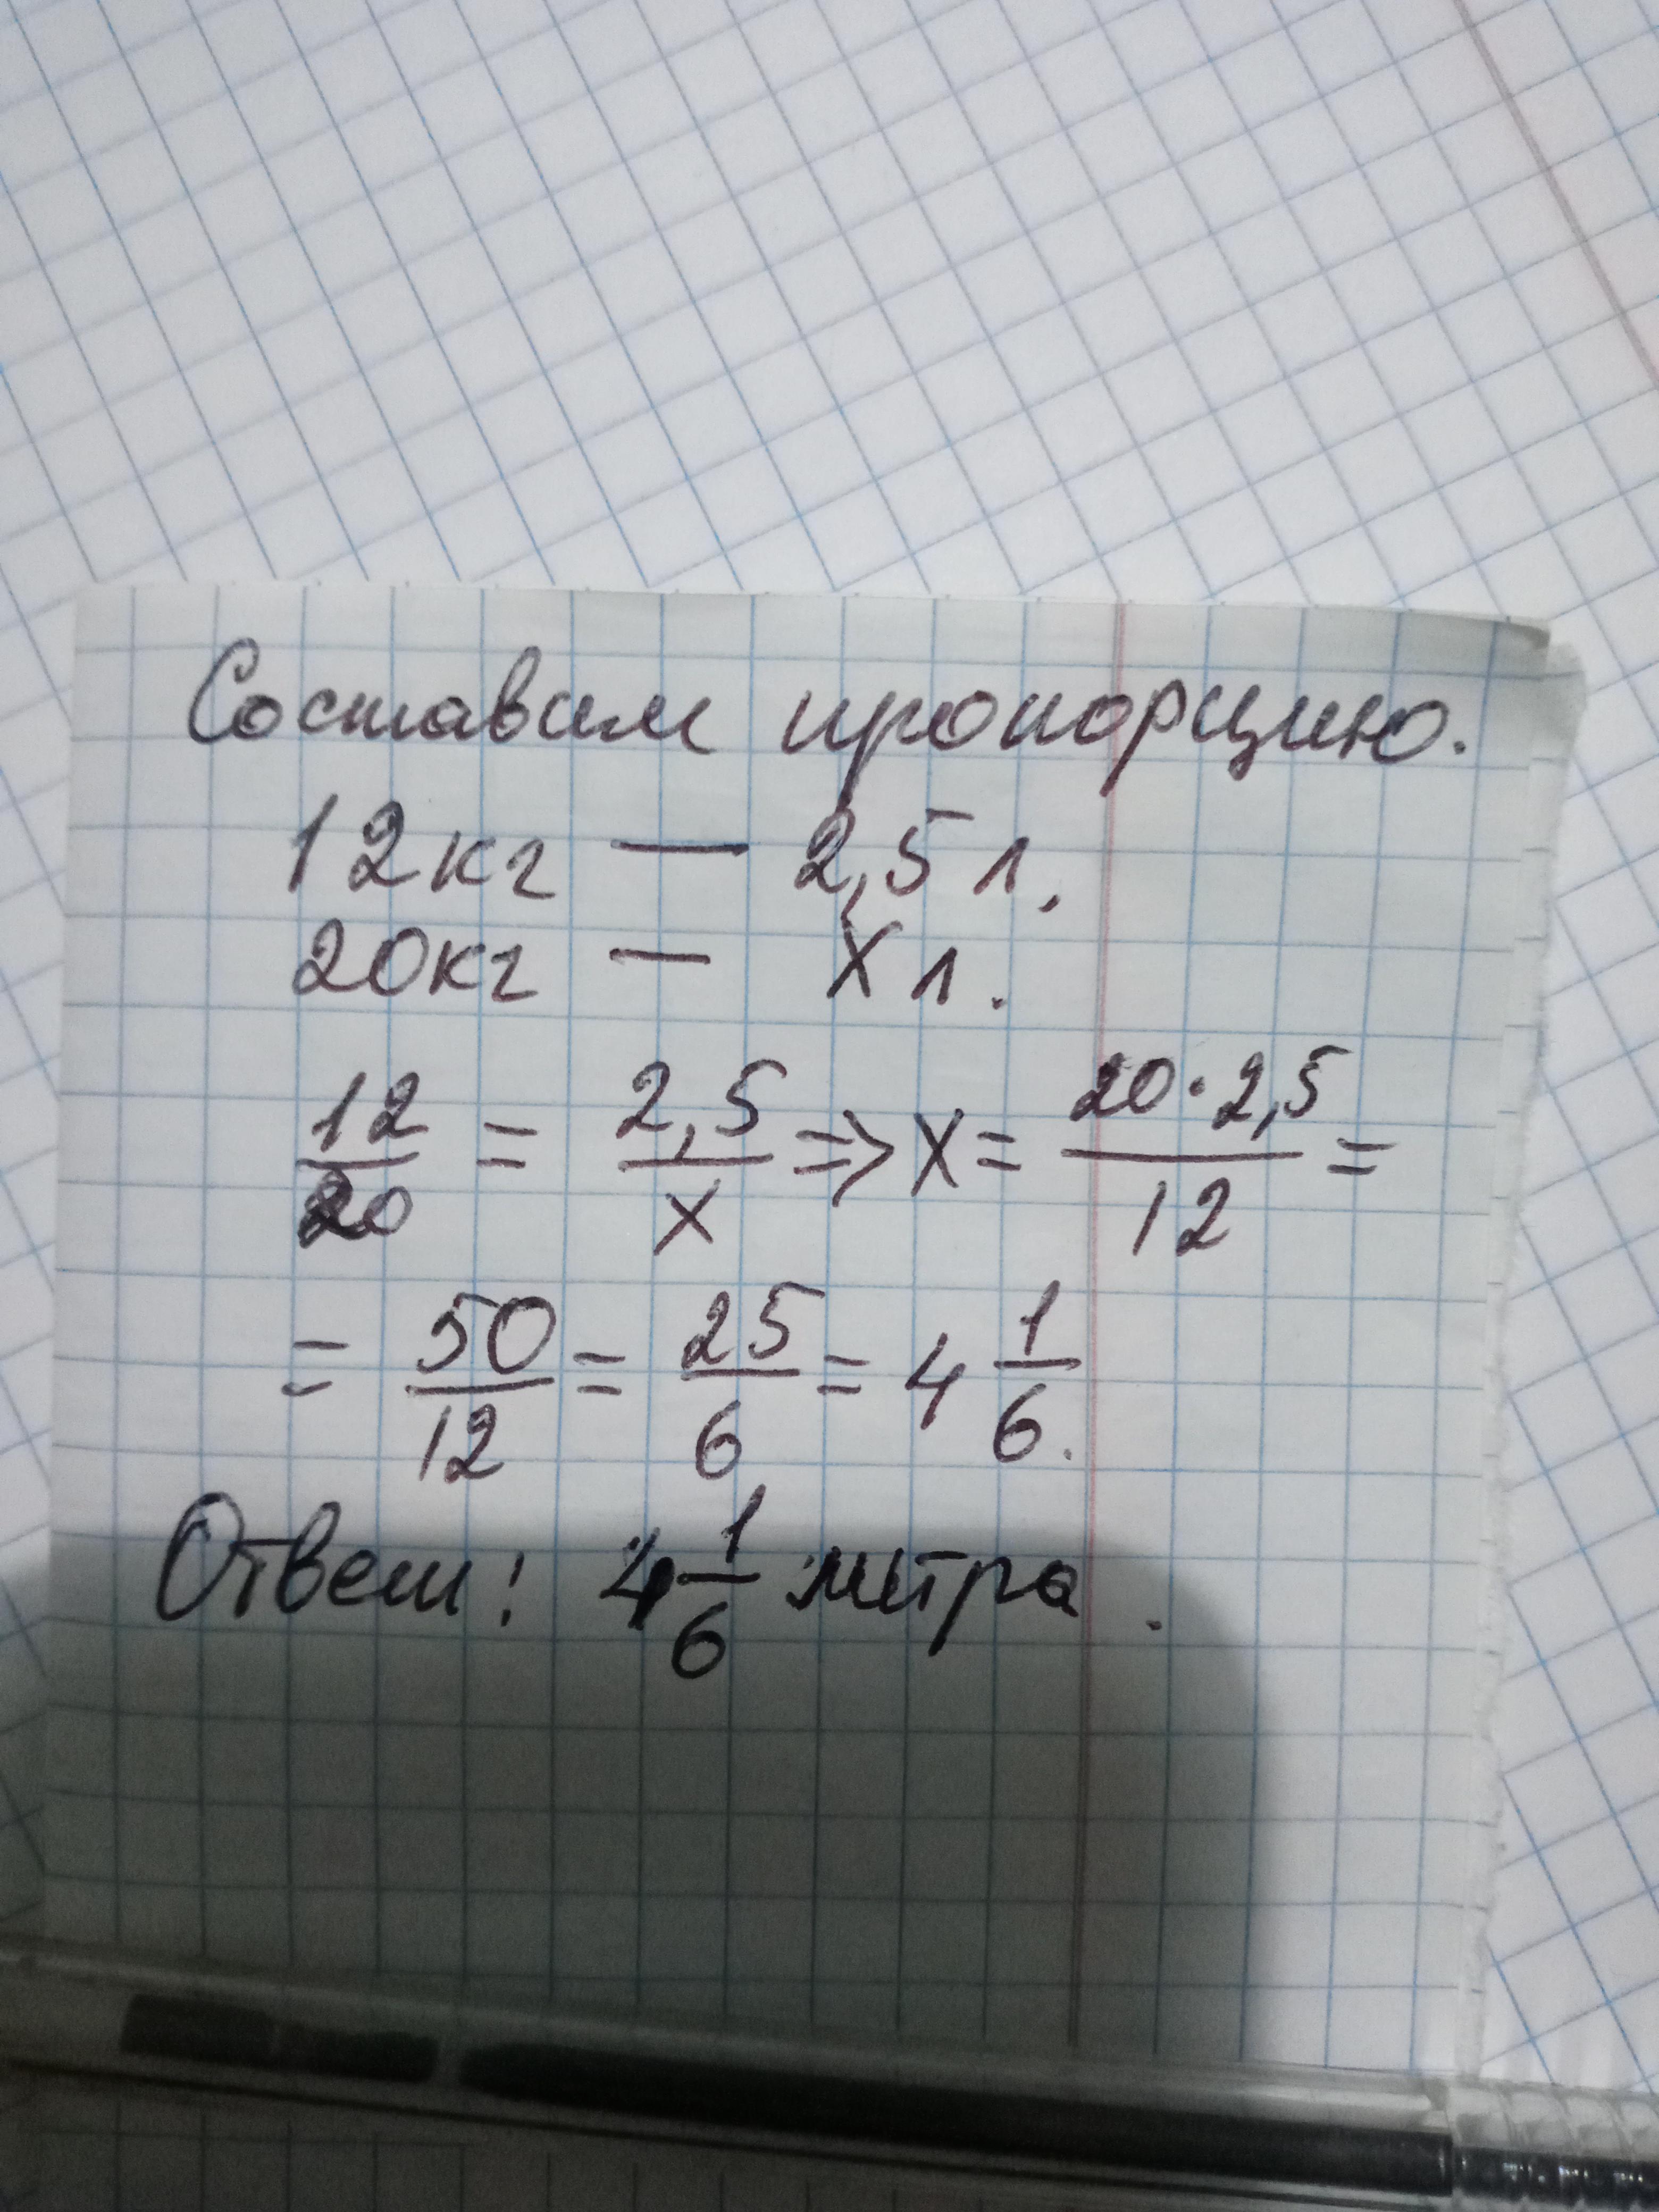 Составим пропорцию.
12кг — 2,5 л.
20кг — X л.
12/20 = 2,5/X => X = 20·2,5/12 =
= 50/12 = 25/6 = 4 1/6.
Ответ: 4 1/6 литра.